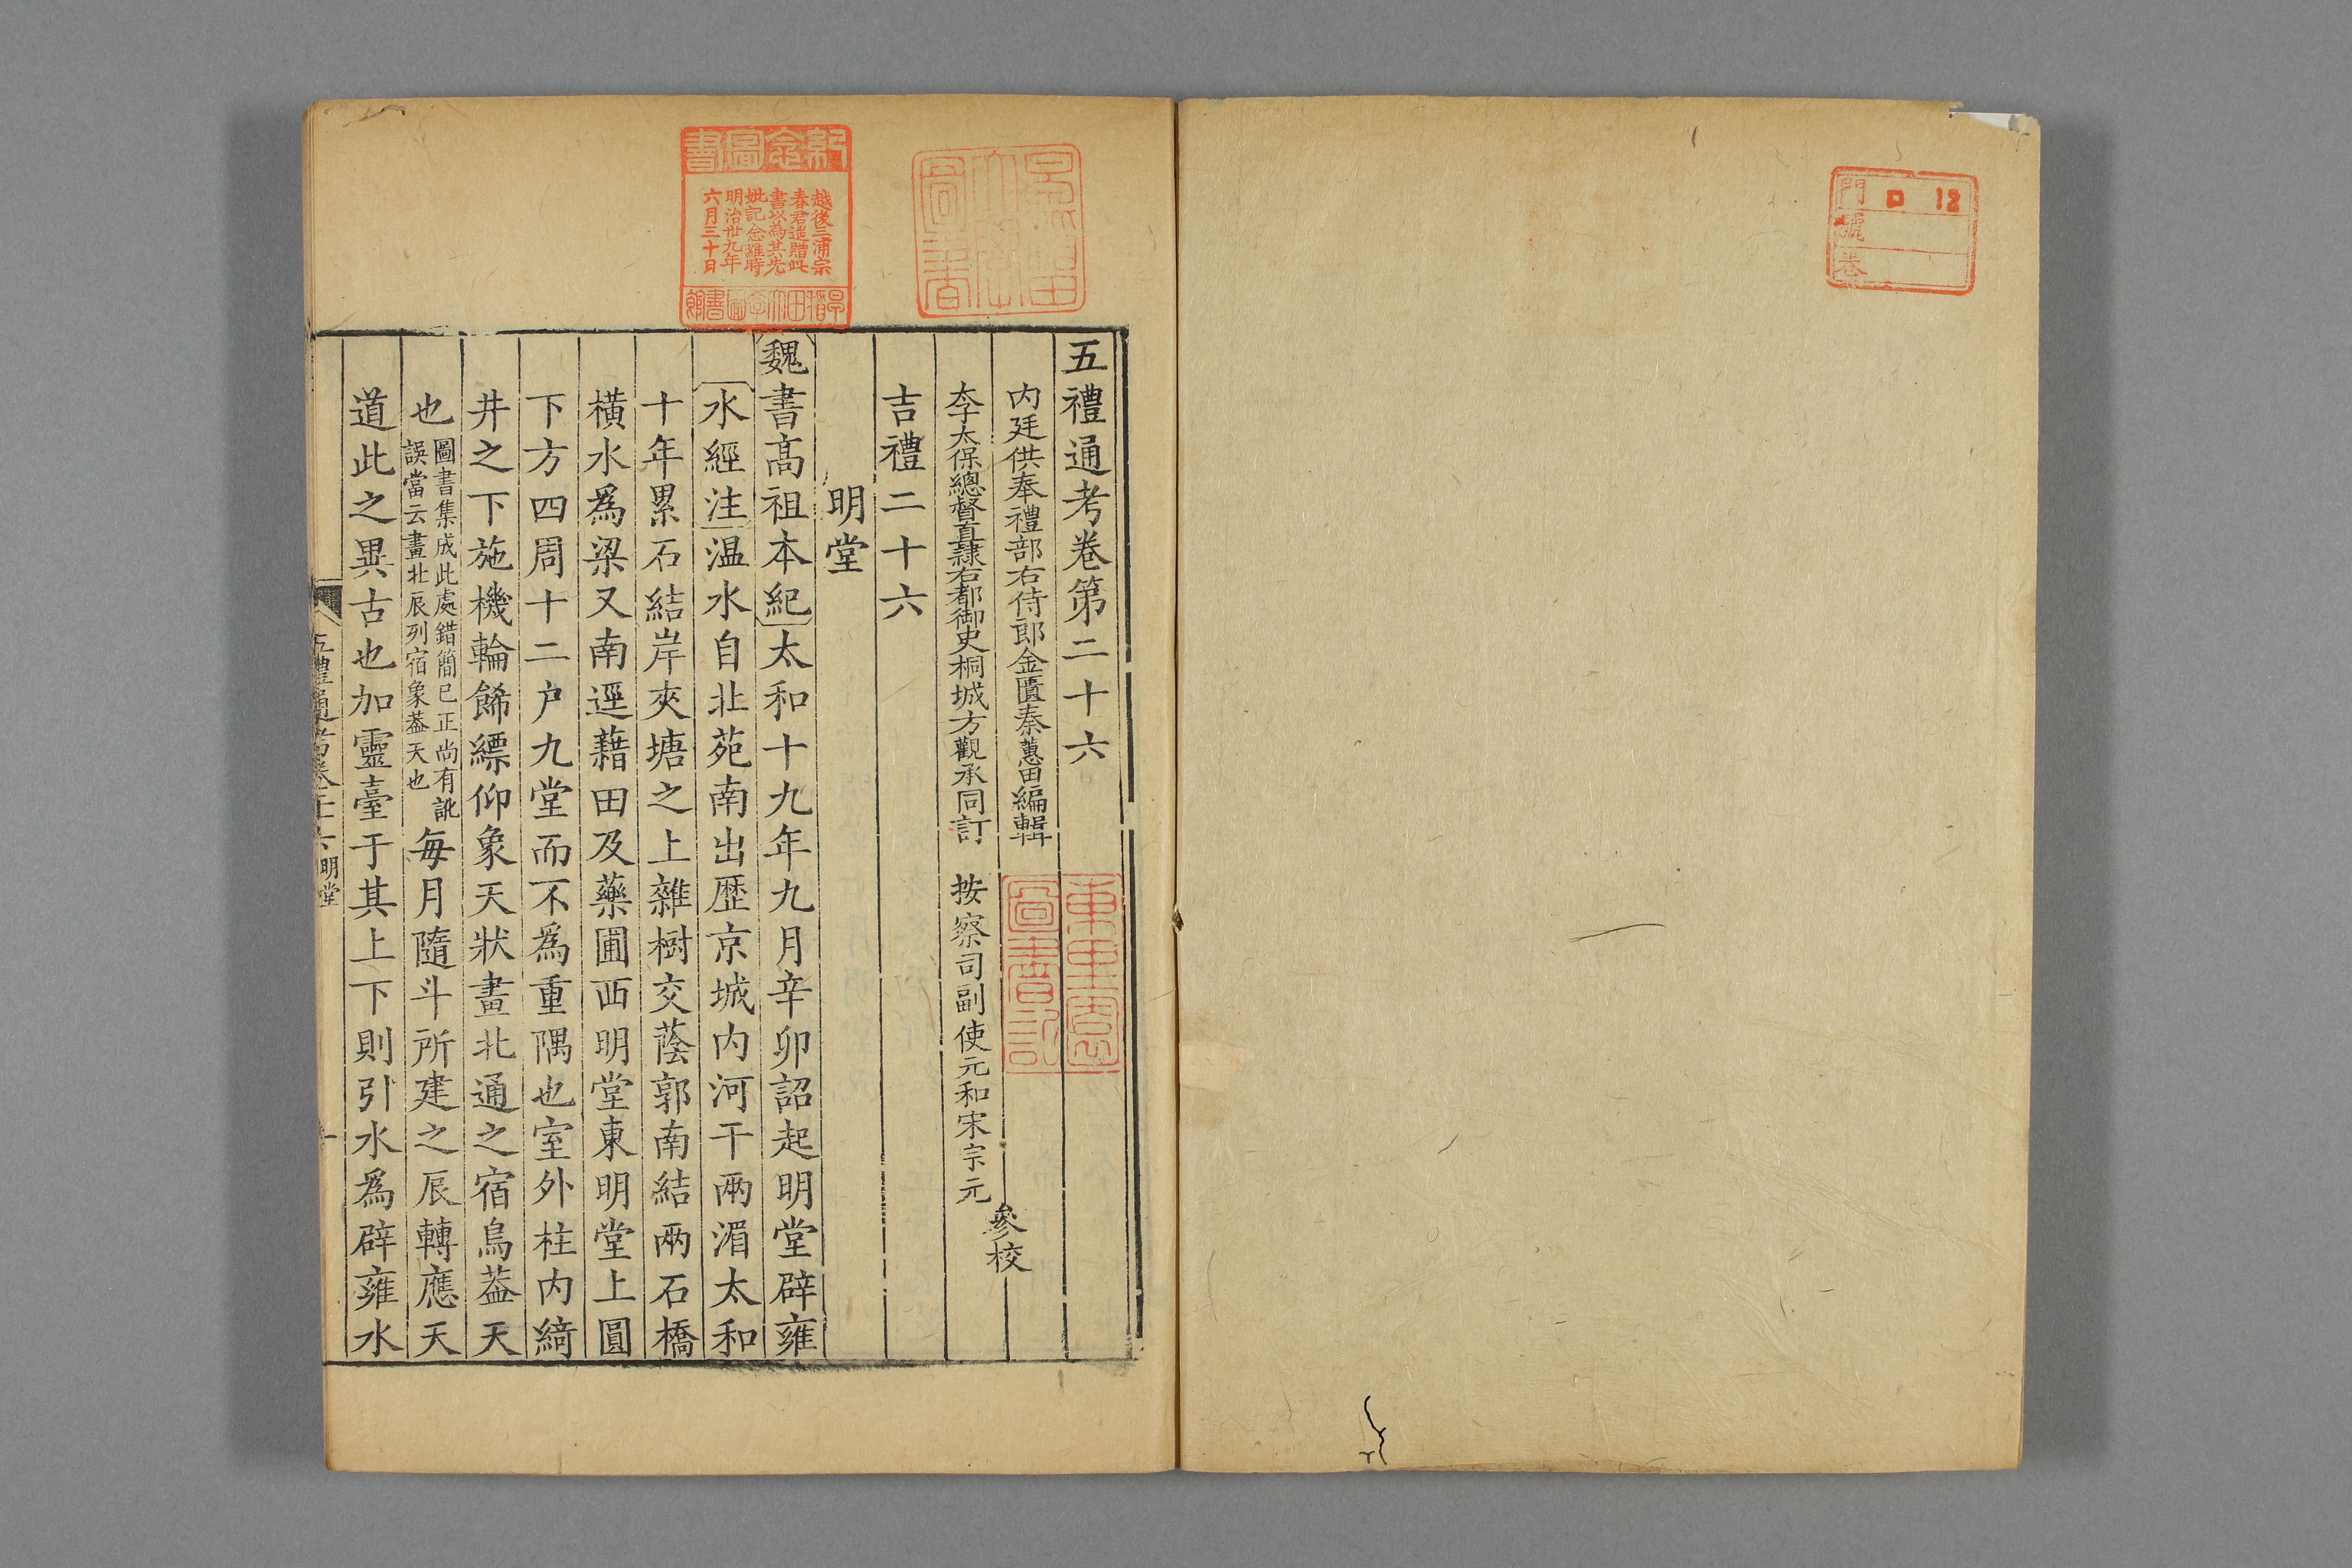 門 ロ 12
號
卷
五禮通考卷第二十六
内廷供奉禮部右侍郎金匱秦蕙田編輯
太子太保總督直隸右都御史桐城方觀承同訂
按察司副使元和宋宗元
參校
吉禮二十六
明堂
魏書高祖本紀太和十九年九月辛卯詔起明堂辟雍
水經注温水自北苑南出歷京城内河干兩湄太和
十年累石結岸夾塘之上雜樹交蔭郭南結兩石橋
橫水爲梁又南逕藉田及藥圃西明堂東明堂上圓
下方四周十二户九堂而不爲重隅也室外柱内綺
井之下施機輪飾縹仰象天狀畫北通之宿鳥蓋天
也圖書集成此處錯簡已正尚有訛
誤當云畫北辰列宿象蓋天也
每月隨斗所建之辰轉應天
道此之異古也加靈臺于其上下則引水爲辟雍水
五禮通考卷二十六 明堂
一
早稻田大學圖書
紀念圖書
越後三浦宗
春君遥贈此
書以為其先
妣記念維時
明治卅九年
六月三十日
早稻田大學圖書館
圖書記